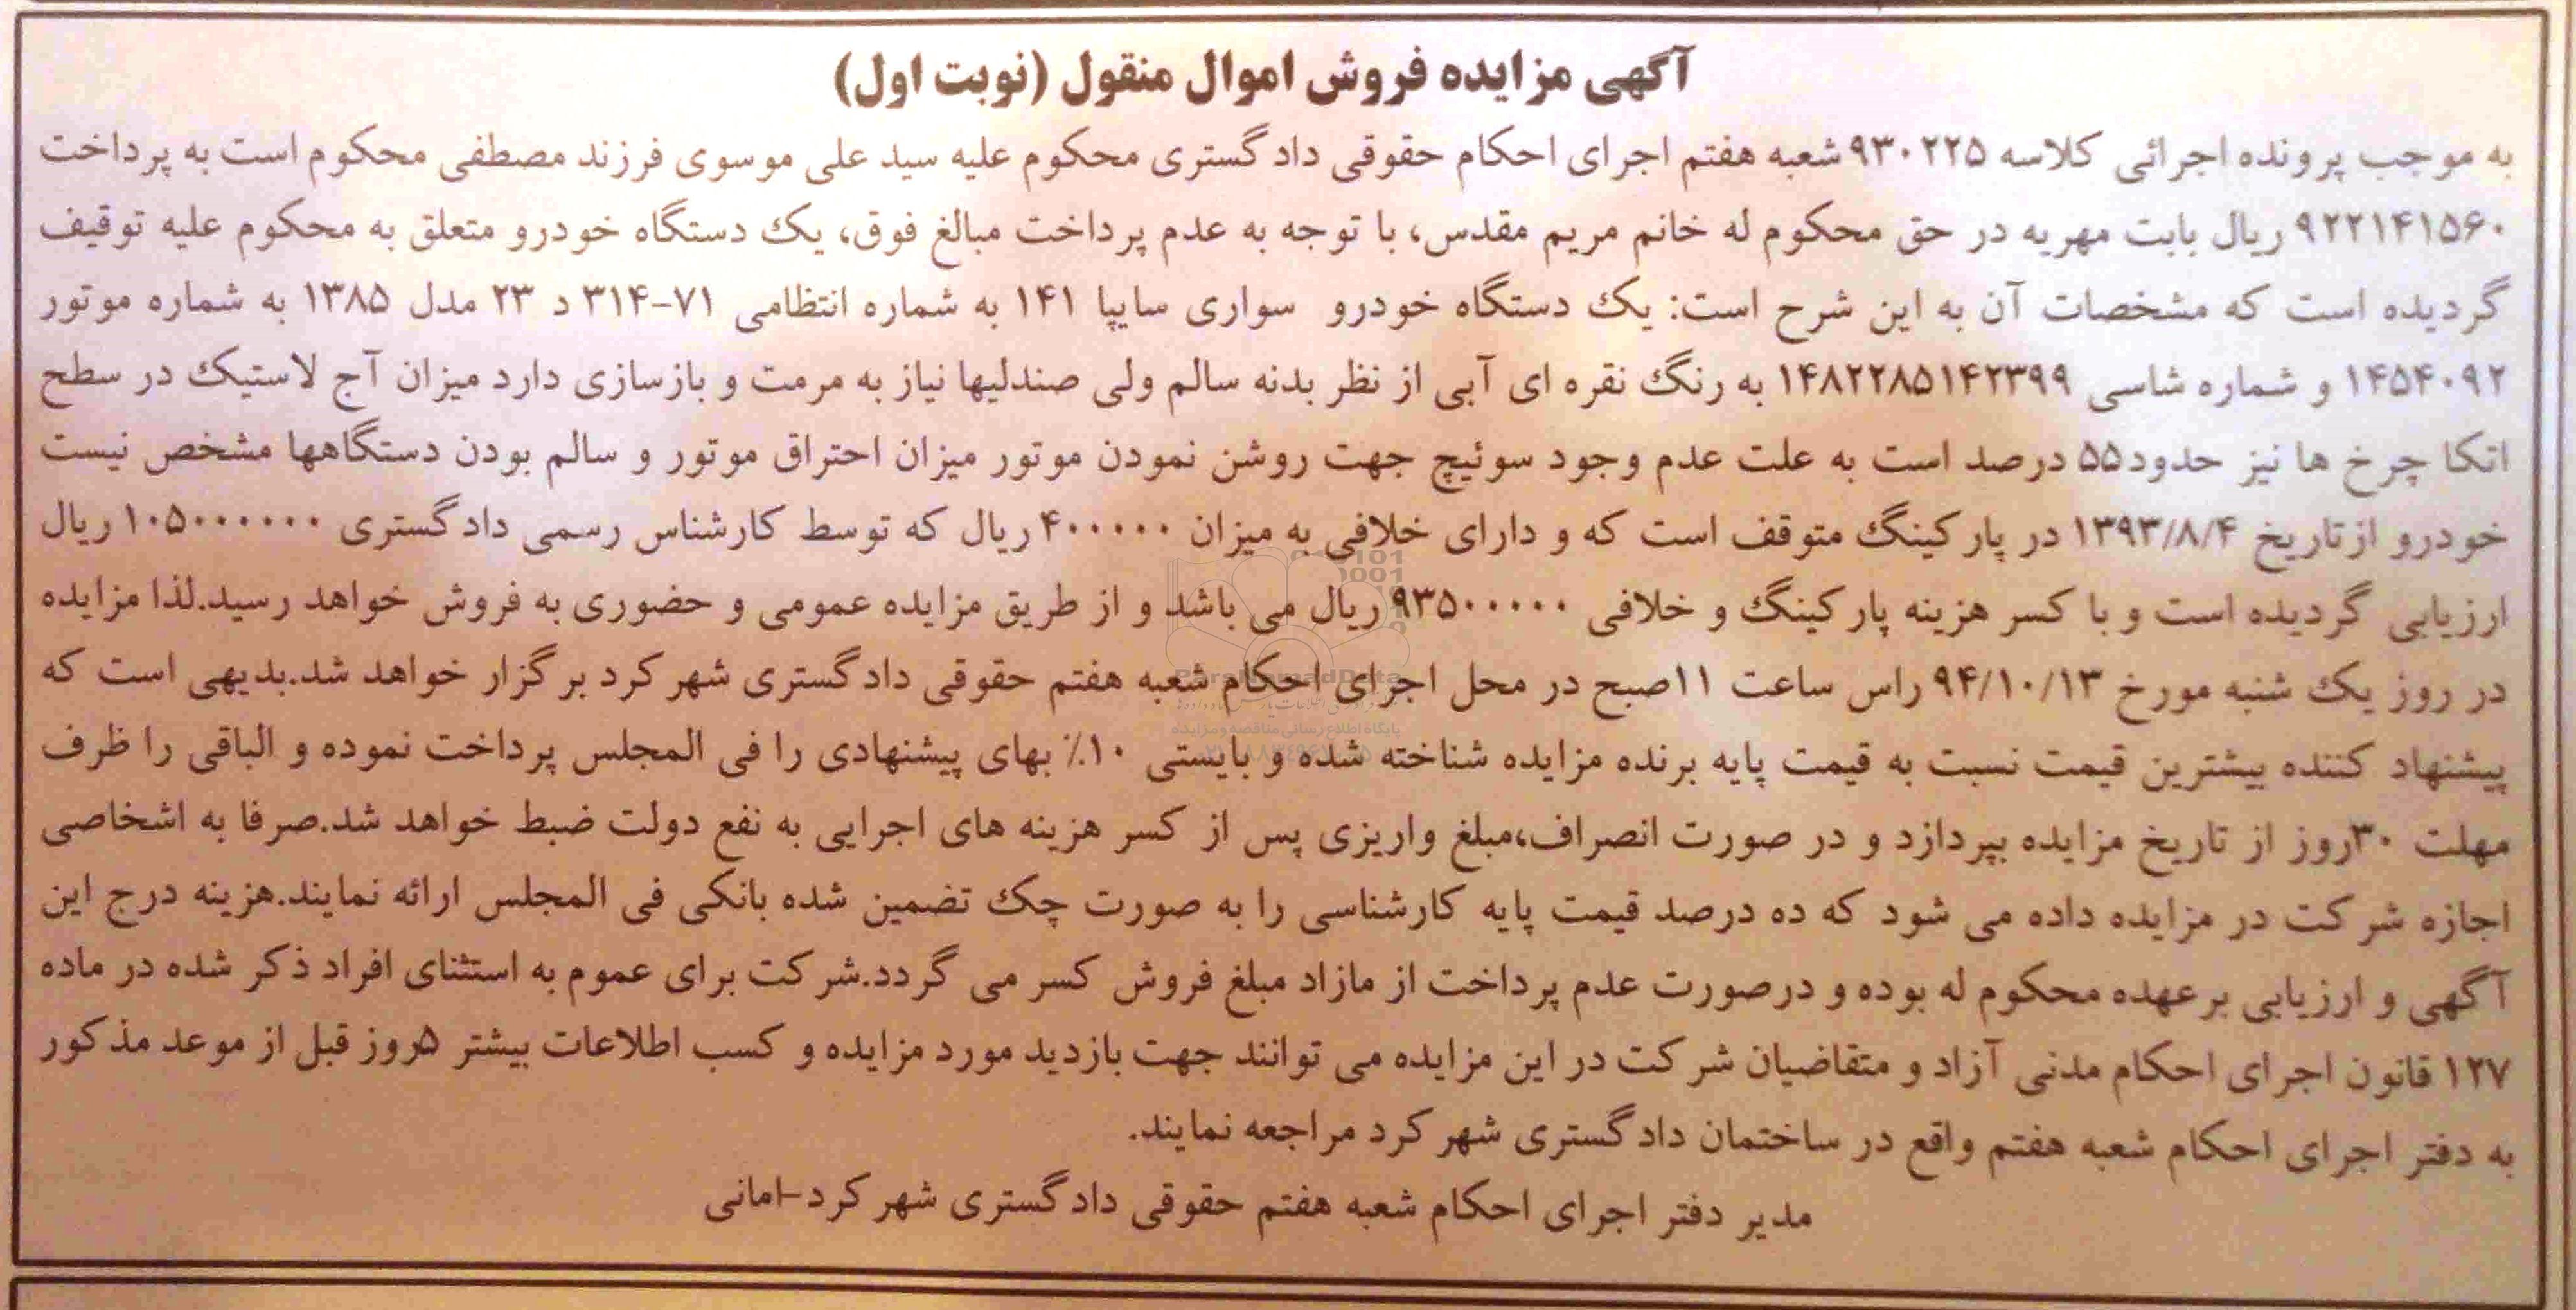 آگهی مزایده فروش اموال منقول (نوبت اول)
به موجب پرونده اجرائی کلاسه ۹۳۰۲۲۵ شعبه هفتم اجرای احکام حقوقی دادگستری محکوم علیه سید علی موسوی فرزند مصطفی محکوم است به پرداخت
۹۲۲۱۴۱۵۶۰ ریال بابت مهریه در حق محکوم له خانم مریم مقدس، با توجه به عدم پرداخت مبالغ فوق، یک دستگاه خودرو متعلق به محکوم علیه توقیف
گردیده است که مشخصات آن به این شرح است: یک دستگاه خودرو سواری سایپا ۱۴۱ به شماره انتظامی ۷۱-۳۱۴ د ۲۳ مدل ۱۳۸۵ به شماره موتور
۱۴۵۴۰۹۲ و شماره شاسی ۱۴۸۲۲۸۵۱۴۲۳۹۹ به رنگ نقره ای آبی از نظر بدنه سالم ولی صندلیها نیاز به مرمت و بازسازی دارد میزان آج لاستیک در سطح
اتکا چرخ ها نیز حدود۵۵ درصد است به علت عدم وجود سوئیچ جهت روشن نمودن موتور میزان احتراق موتور و سالم بودن دستگاهها مشخص نیست
خودرو ازتاریخ ۱۳۹۳/۸/۴ در پارکینگ متوقف است که و دارای خلافی به میزان ۴۰۰۰۰۰ ریال که توسط کارشناس رسمی دادگستری ۱۰۵۰۰۰۰۰۰ ریال
ارزیابی گردیده است و با کسر هزینه پارکینگ و خلافی ۹۳۵۰۰۰۰۰ ریال می باشد و از طریق مزایده عمومی و حضوری به فروش خواهد رسید.لذا مزایده
در روز یک شنبه مورخ ۹۴/۱۰/۱۳ راس ساعت ۱۱صبح در محل اجرای احکام شعبه هفتم حقوقی دادگستری شهرکرد برگزار خواهد شد.بدیهی است که
پیشنهاد کننده بیشترین قیمت نسبت به قیمت پایه برنده مزایده شناخته شده و بایستی ۱۰٪ بهای پیشنهادی را فی المجلس پرداخت نموده و الباقی را ظرف
مهلت ۳۰روز از تاریخ مزایده بپردازد و در صورت انصراف،مبلغ واریزی پس از کسر هزینه های اجرایی به نفع دولت ضبط خواهد شد.صرفا به اشخاصی
اجازه شرکت در مزایده داده می شود که ده درصد قیمت پایه کارشناسی را به صورت چک تضمین شده بانکی فی المجلس ارائه نمایند.هزینه درج این
آگهی و ارزیابی برعهده محکوم له بوده و درصورت عدم پرداخت از مازاد مبلغ فروش کسر می گردد.شرکت برای عموم به استثنای افراد ذکر شده در ماده
۱۲۷ قانون اجرای احکام مدنی آزاد و متقاضیان شرکت در این مزایده می توانند جهت بازدید مورد مزایده و کسب اطلاعات بیشتر ۵روز قبل از موعد مذکور
به دفتر اجرای احکام شعبه هفتم واقع در ساختمان دادگستری شهرکرد مراجعه نمایند.
مدیر دفتر اجرای احکام شعبه هفتم حقوقی دادگستری شهرکرد-امانی